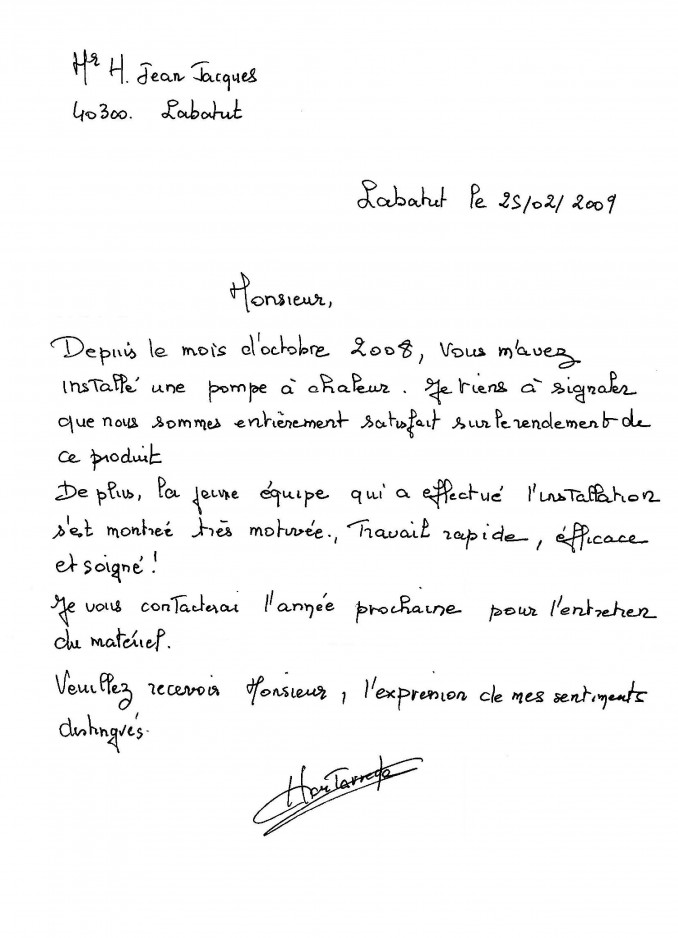 Mr H. Jean Jacques
40300. Labatut
Labatut le 25/02/2009
Monsieur,
Depuis le mois d'octobre 2008, vous m'avez
installé une pompe à chaleur. Je tiens à signaler
que nous sommes entièrement satisfait sur le rendement de
ce produit
De plus, la jeune équipe qui a effectué l'installation
s'est montreé très motivée., Travail rapide, éfficace
et soigné !
Je vous contacterai l'année prochaine pour l'entretien
du matériel.
Veuillez recevoir Monsieur, l'expression de mes sentiments
distingués.